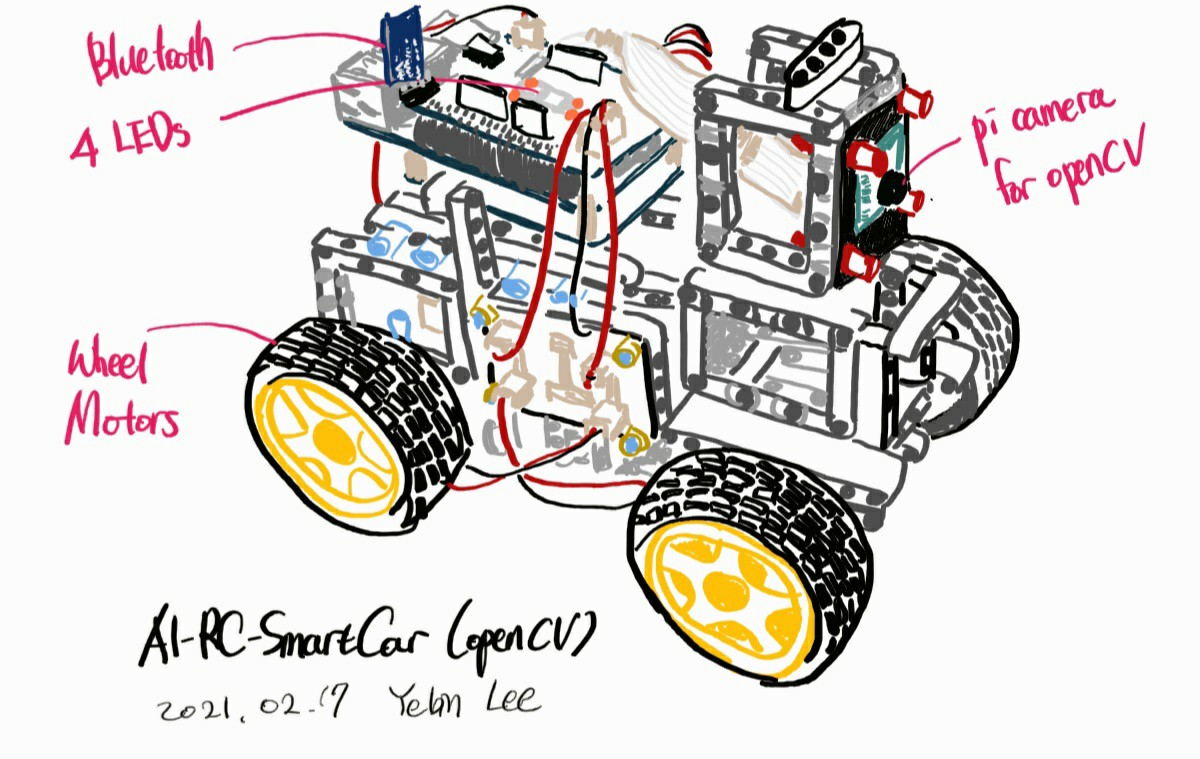 Bluetooth
4 LEDs
pi camera
for openCV
Wheel
Motors
AI-RC-SmartCar (openCV)
2021.02.17 Lee